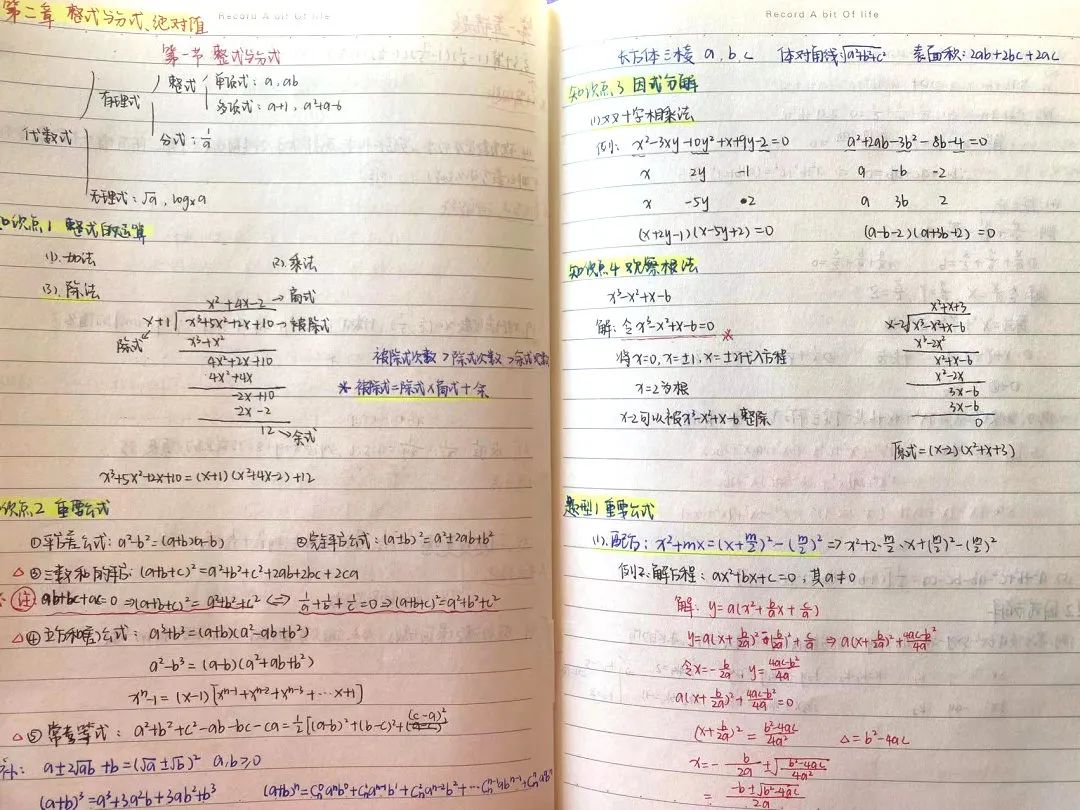 Record A bit of life
第二章 整式与分式、绝对值
第一节 整式与分式
代数式
有理式
整式
单项式：a, ab
多项式：a+1, a²+a-b
分式：1/a
无理式：√a, logₓa
知识点1 整式的运算
(1).加法 (2).乘法
(3).除法
x²+4x-2 →商式
x+1 x³+5x²+2x+10 →被除式
除式
x³+x²
4x²+2x+10
4x²+4x
-2x+10
-2x-2
12 →余式
被除式次数 > 除式次数 > 余式次数
* 被除式=除式×商式+余
x³+5x²-12x+10=(x+1)(x²+4x-2)+12
知识点2 重要公式
①平方差公式：a²-b²=(a+b)(a-b) ②完全平方公式：(a±b)²=a²±2ab+b²
△ ③三数和的平方：(a+b+c)²=a²+b²+c²+2ab+2bc+2ca
注：ab+bc+ac=0 ⇒(a+b+c)²=a²+b²+c² ⟺ 1/a+1/b+1/c=0 ⇒(a+b+c)²=a²+b²+c²
△ ④立方和(差)公式：a³+b³=(a+b)(a²-ab+b²)
a²-b³=(a-b)(a²+ab+b²)
xⁿ-1=(x-1)[xⁿ⁻¹+xⁿ⁻²+xⁿ⁻³+…x+1]
△ ⑤常考等式：a²+b²+c²-ab-bc-ca=1/2[(a-b)²+(b-c)²+(c-a)²
补：a±2√ab+b=(√a±√b)² a,b≥0
(a+b)³=a³+3a²b+3ab²+b³
Record A bit Of life
长方体三棱 a, b, c 体对角线:√a²+b²+c² 表面积：2ab+2bc+2ac
知识点3 因式分解
(1)双十字相乘法
例1：x²-3xy-10y²+x+9y-2=0 a²+2ab-3b²-8b-4=0
x 2y -1 a -b -2
x -5y 2 a 3b 2
(x+2y-1)(x-5y+2)=0 (a-b-2)(a+3b+2)=0
知识点4 观察根法
x³-x²+x-6
解：令x³-x²+x-6=0 *
将x=0, x=±1, x=±2代入方程
x=2为根
x-2可以被x³-x²+x-6整除
x²+x+3
x-2 x³-x²+x-6
x³-2x²
x²+x-6
x²-2x
3x-6
3x-6
0
原式=(x-2)(x²+x+3)
题型1 重要公式
(1).配方：x²+mx=(x+m/2)²-(m/2)² ⇒x²+2·m/2·x+(m/2)²-(m/2)²
例2:解方程：ax²+bx+c=0,其a≠0
解：y=a(x²+b/a x+c/a)
y=a(x+b/2a)²-(b/2a)²+c/a ⇒ a(x+b/2a)²+4ac-b²/4a
令x=-b/2a, y=4ac-b²/4a
a(x+b/2a)²+4ac-b²/4a=0
(x+b/2a)²=b²-4ac/4a² △=b²-4ac
x=-b/2a±√b²-4ac/4a²
=-b±√b²-4ac/2a